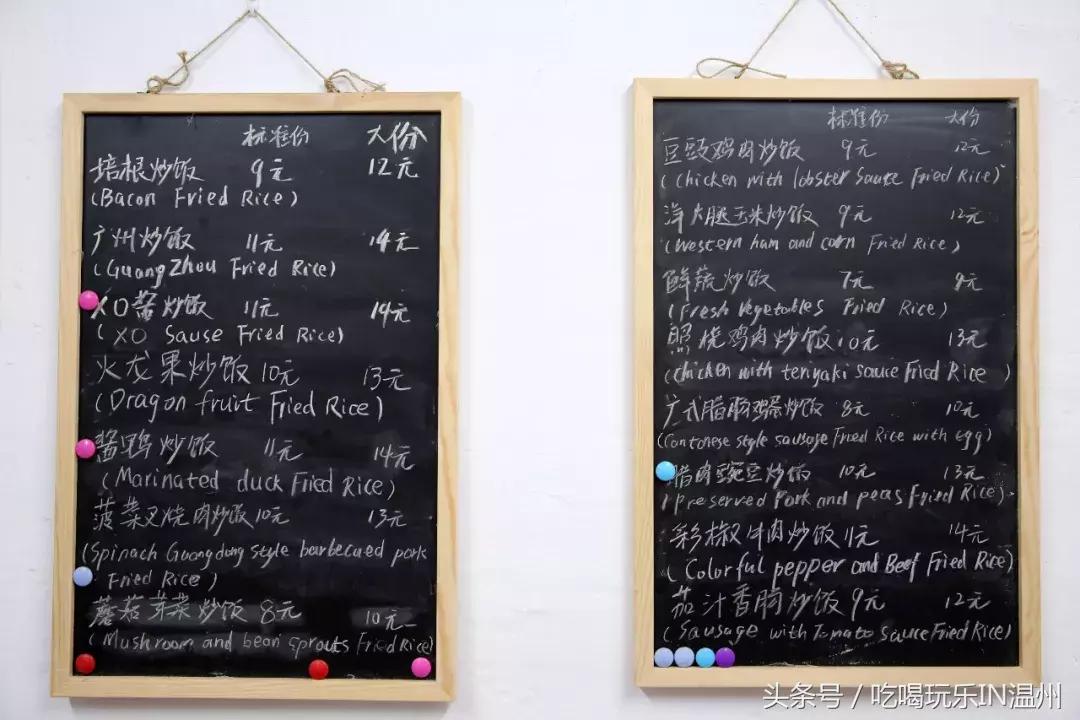 标准份 大份
培根炒饭 9元 12元
(Bacon Fried Rice)
广州炒饭 11元 14元
(GuangZhou Fried Rice)
XO酱炒饭 11元 14元
(XO Sause Fried Rice)
火龙果炒饭 10元 13元
(Dragon fruit Fried Rice)
酱鸭炒饭 11元 14元
(Marinated duck Fried Rice)
菠菜叉烧肉炒饭 10元 13元
(Spinach Guangdong style barbecued pork
Fried Rice)
蘑菇芽菜炒饭 8元 10元
(Mushroom and bean sprouts Fried Rice)
标准份 大份
豆豉鸡肉炒饭 9元 12元
(Chicken with lobster Sauce Fried Rice)
洋火腿玉米炒饭 9元 12元
(Western ham and corn Fried Rice)
鲜蔬炒饭 7元
(Fresh Vegetables Fried Rice)
照烧鸡肉炒饭 10元 13元
(Chicken with teriyaki sauce Fried Rice)
广式腊肠鸡蛋炒饭 8元 10元
(Cantonese style sausage Fried Rice with egg)
腊肉豌豆炒饭 10元 13元
(Preserved Pork and peas Fried Rice)
彩椒牛肉炒饭 11元 14元
(Colorful pepper and Beef Fried Rice)
茄汁香肠炒饭 9元 12元
(Sausage with Tomato Sauce Fried Rice)
头条号 / 吃喝玩乐IN温州